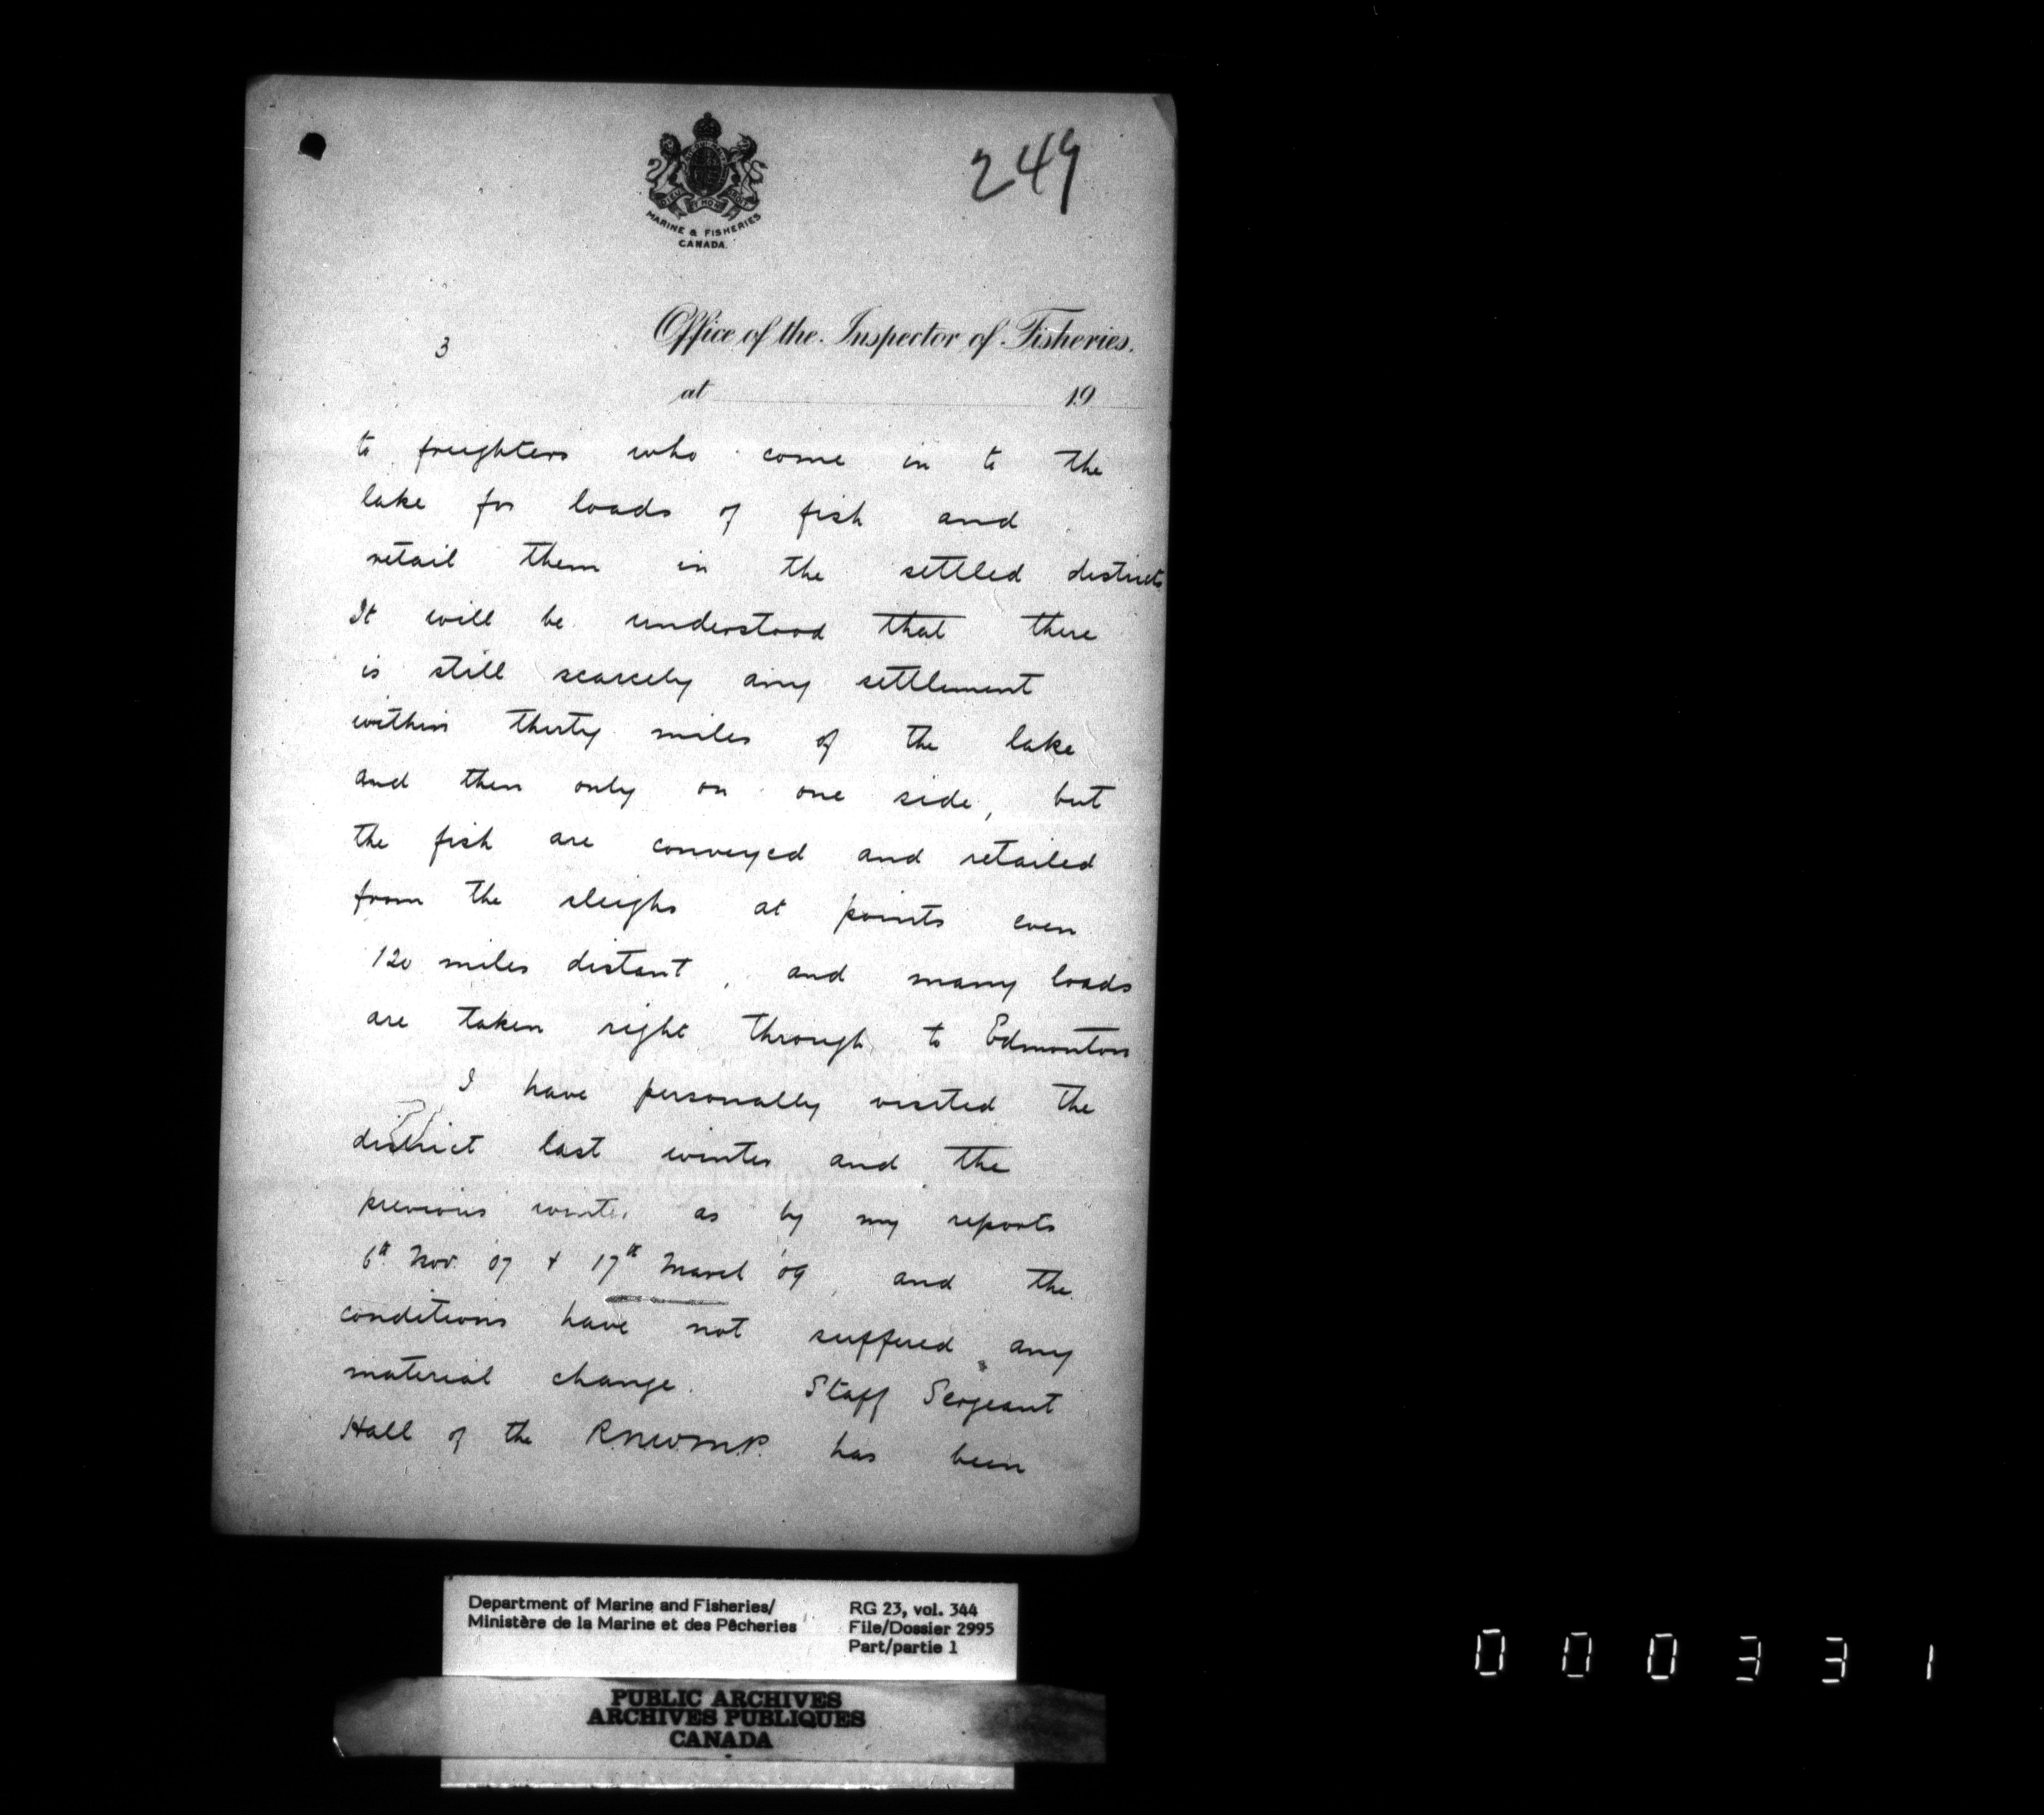 249
MARINE & FISHERIES
CANADA.
3
Office of the Inspector of Fisheries.
at 19
to freighters who come in to the
lake for loads of fish and
retail them in the settled districts
It will be understood that there
is still scarcely any settlement
within thirty miles of the lake
and then only on one side, but
the fish are conveyed and retailed
from the sleighs at points even
120 miles distant, and many loads
are taken right through to Edmonton
I have personally visited the
district last winter and the
previous winter as by my reports
6th Nov. 07 & 17th March '09, and the
conditions have not suffered any
material change. Staff Sergeant
Hall of the R.N.W.M.P. has been
Department of Marine and Fisheries/
Ministère de la Marine et des Pêcheries
RG 23, vol. 344
File/Dossier 2995
Part/partie 1
PUBLIC ARCHIVES
ARCHIVES PUBLIQUES
CANADA
000331